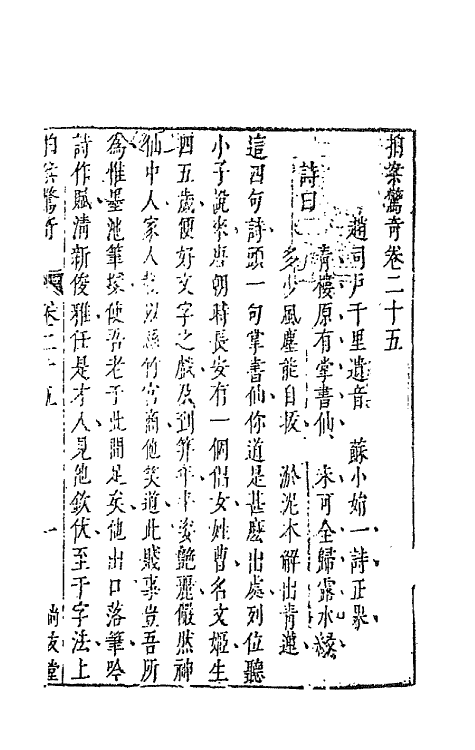 拍案驚奇卷二十五
趙司戶千里遺音　蘇小娟一詩正果
詩曰
青樓原有掌書仙　未可全歸露水緣
多少風塵能自拔　淤泥本解出青蓮
這四句詩頭一句掌書仙你道是甚麽出處列位聽
小子說來唐朝時長安有一個倡女姓曹名文姬生
四五歲便好文字之戲及到笄年丰姿艷麗儼然神
仙中人家人教以絲竹宮商他笑道此賤事豈吾所
爲惟墨池筆塚使吾老于此間足矣他出口落筆吟
詩作賦清新俊雅任是才人見他欽伏至于字法上
拍案驚奇　卷二十五　一　尚友堂